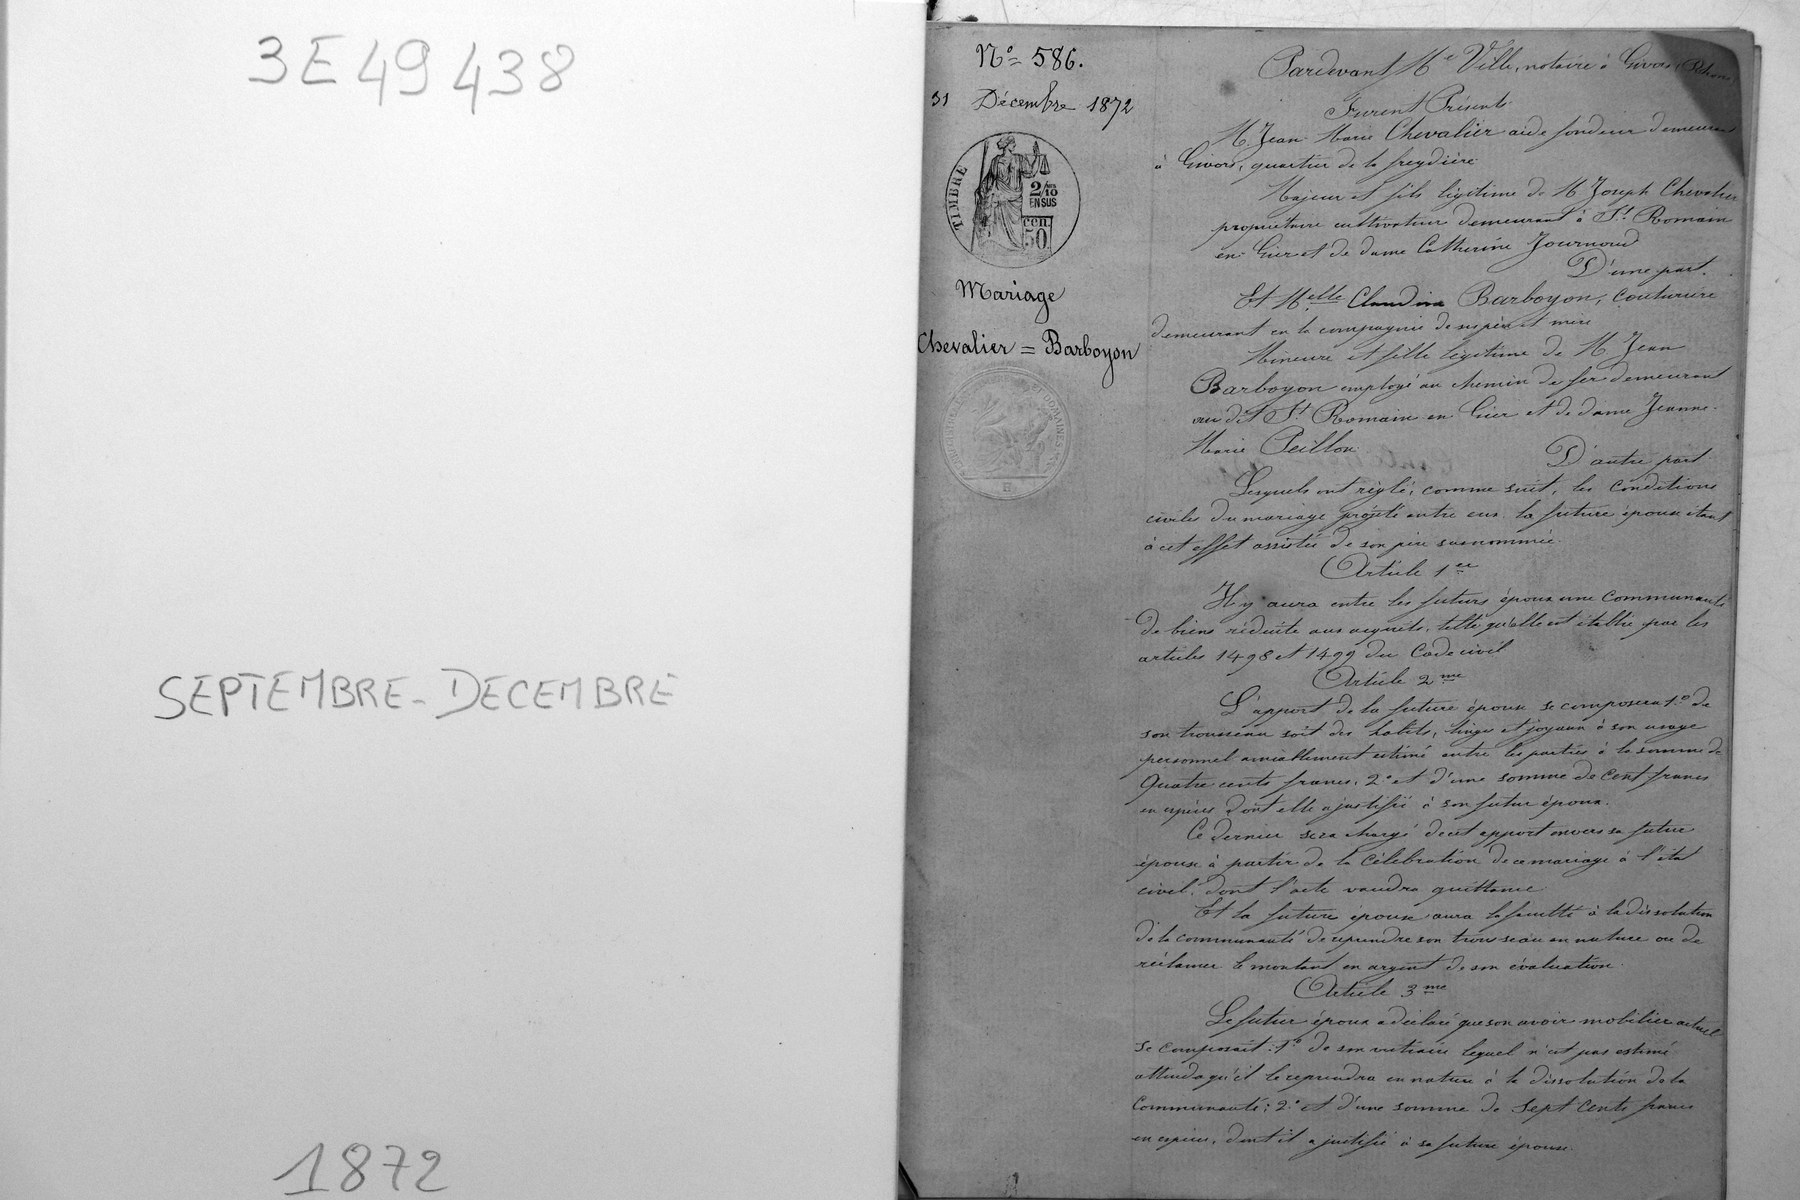 3E49 438
SEPTEMBRE-DECEMBRE
1872
N° 586.
31 Décembre 1872
TIMBRE
2/10
EN SUS
cen.
50
Mariage
Chevalier = Barboyon
Pardevant Me Ville, notaire à Givors (Rhône)
Furent Présents
M. Jean Marie Chevalier aide fondeur demeurant
à Givors, quartier de la freydière
Majeur et fils légitime de M Joseph Chevalier
propriétaire cultivateur demeurant à St Romain
en Gier et de dame Catherine Journoud
D'une part.
Et Melle Claudine Barboyon, couturière
demeurant en la compagnie de ses père et mère
Mineure et fille légitime de M. Jean
Barboyon employé au chemin de fer demeurant
au dit St Romain en Gier et de dame Jeanne
Marie Peillon
D'autre part
Lesquels ont réglé, comme suit, les conditions
civiles du mariage projeté entre eux la future épouse étant
à cet effet assistée de son père susnommé.
Article 1er
Il y aura entre les futurs époux une communauté
de biens réduite aux acquêts, telle qu'elle est établie par les
articles 1498 et 1499 du Code civil
Article 2me
L'apport de la future épouse se composera 1° de
son trousseau soit des habits, linges et joyaux à son usage
personnel amiablement estimé entre les parties à la somme de
Quatre cents francs, 2° et d'une somme de Cent francs
en espèces dont elle a justifié à son futur époux.
Ce dernier sera chargé de cet apport envers sa future
épouse à partir de la célébration de ce mariage à l'état
civil, dont l'acte vaudra quittance
Et la future épouse aura la faculté à la dissolution
de la communauté de reprendre son trousseau en nature ou de
réclamer le montant en argent de son évaluation.
Article 3me
Le futur époux a déclaré que son avoir mobilier actuel
se composait: 1° de son vestiaire lequel n'est pas estimé
attendu qu'il le reprendra en nature à la dissolution de la
Communauté; 2° et d'une somme de Sept Cents francs
en espèces, dont il a justifié à sa future épouse.